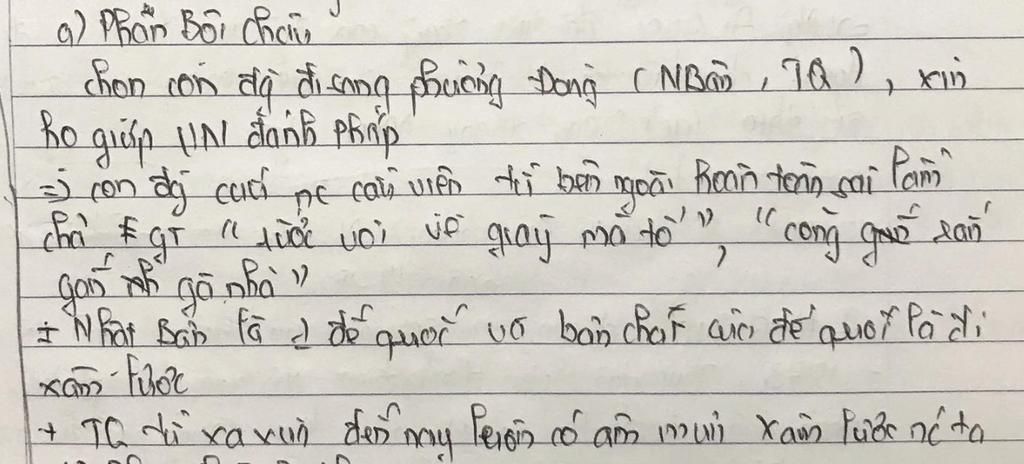 a) Phan Bội Châu
chọn con đg đi sang phương Đông (N Bản, TQ), xin
họ giúp VN đánh Pháp
=> con đg cứu nc cầu viện từ bên ngoài hoàn toàn sai lầm
chả ≠ gì "rước voi về giày mả tổ", "cõng rắn
cắn gà nhà"
+ Nhật Bản là 1 đế quốc và bản chất của đế quốc là đi
xâm lược
+ TQ từ xa xưa đến nay luôn có âm mưu xâm lược nc ta